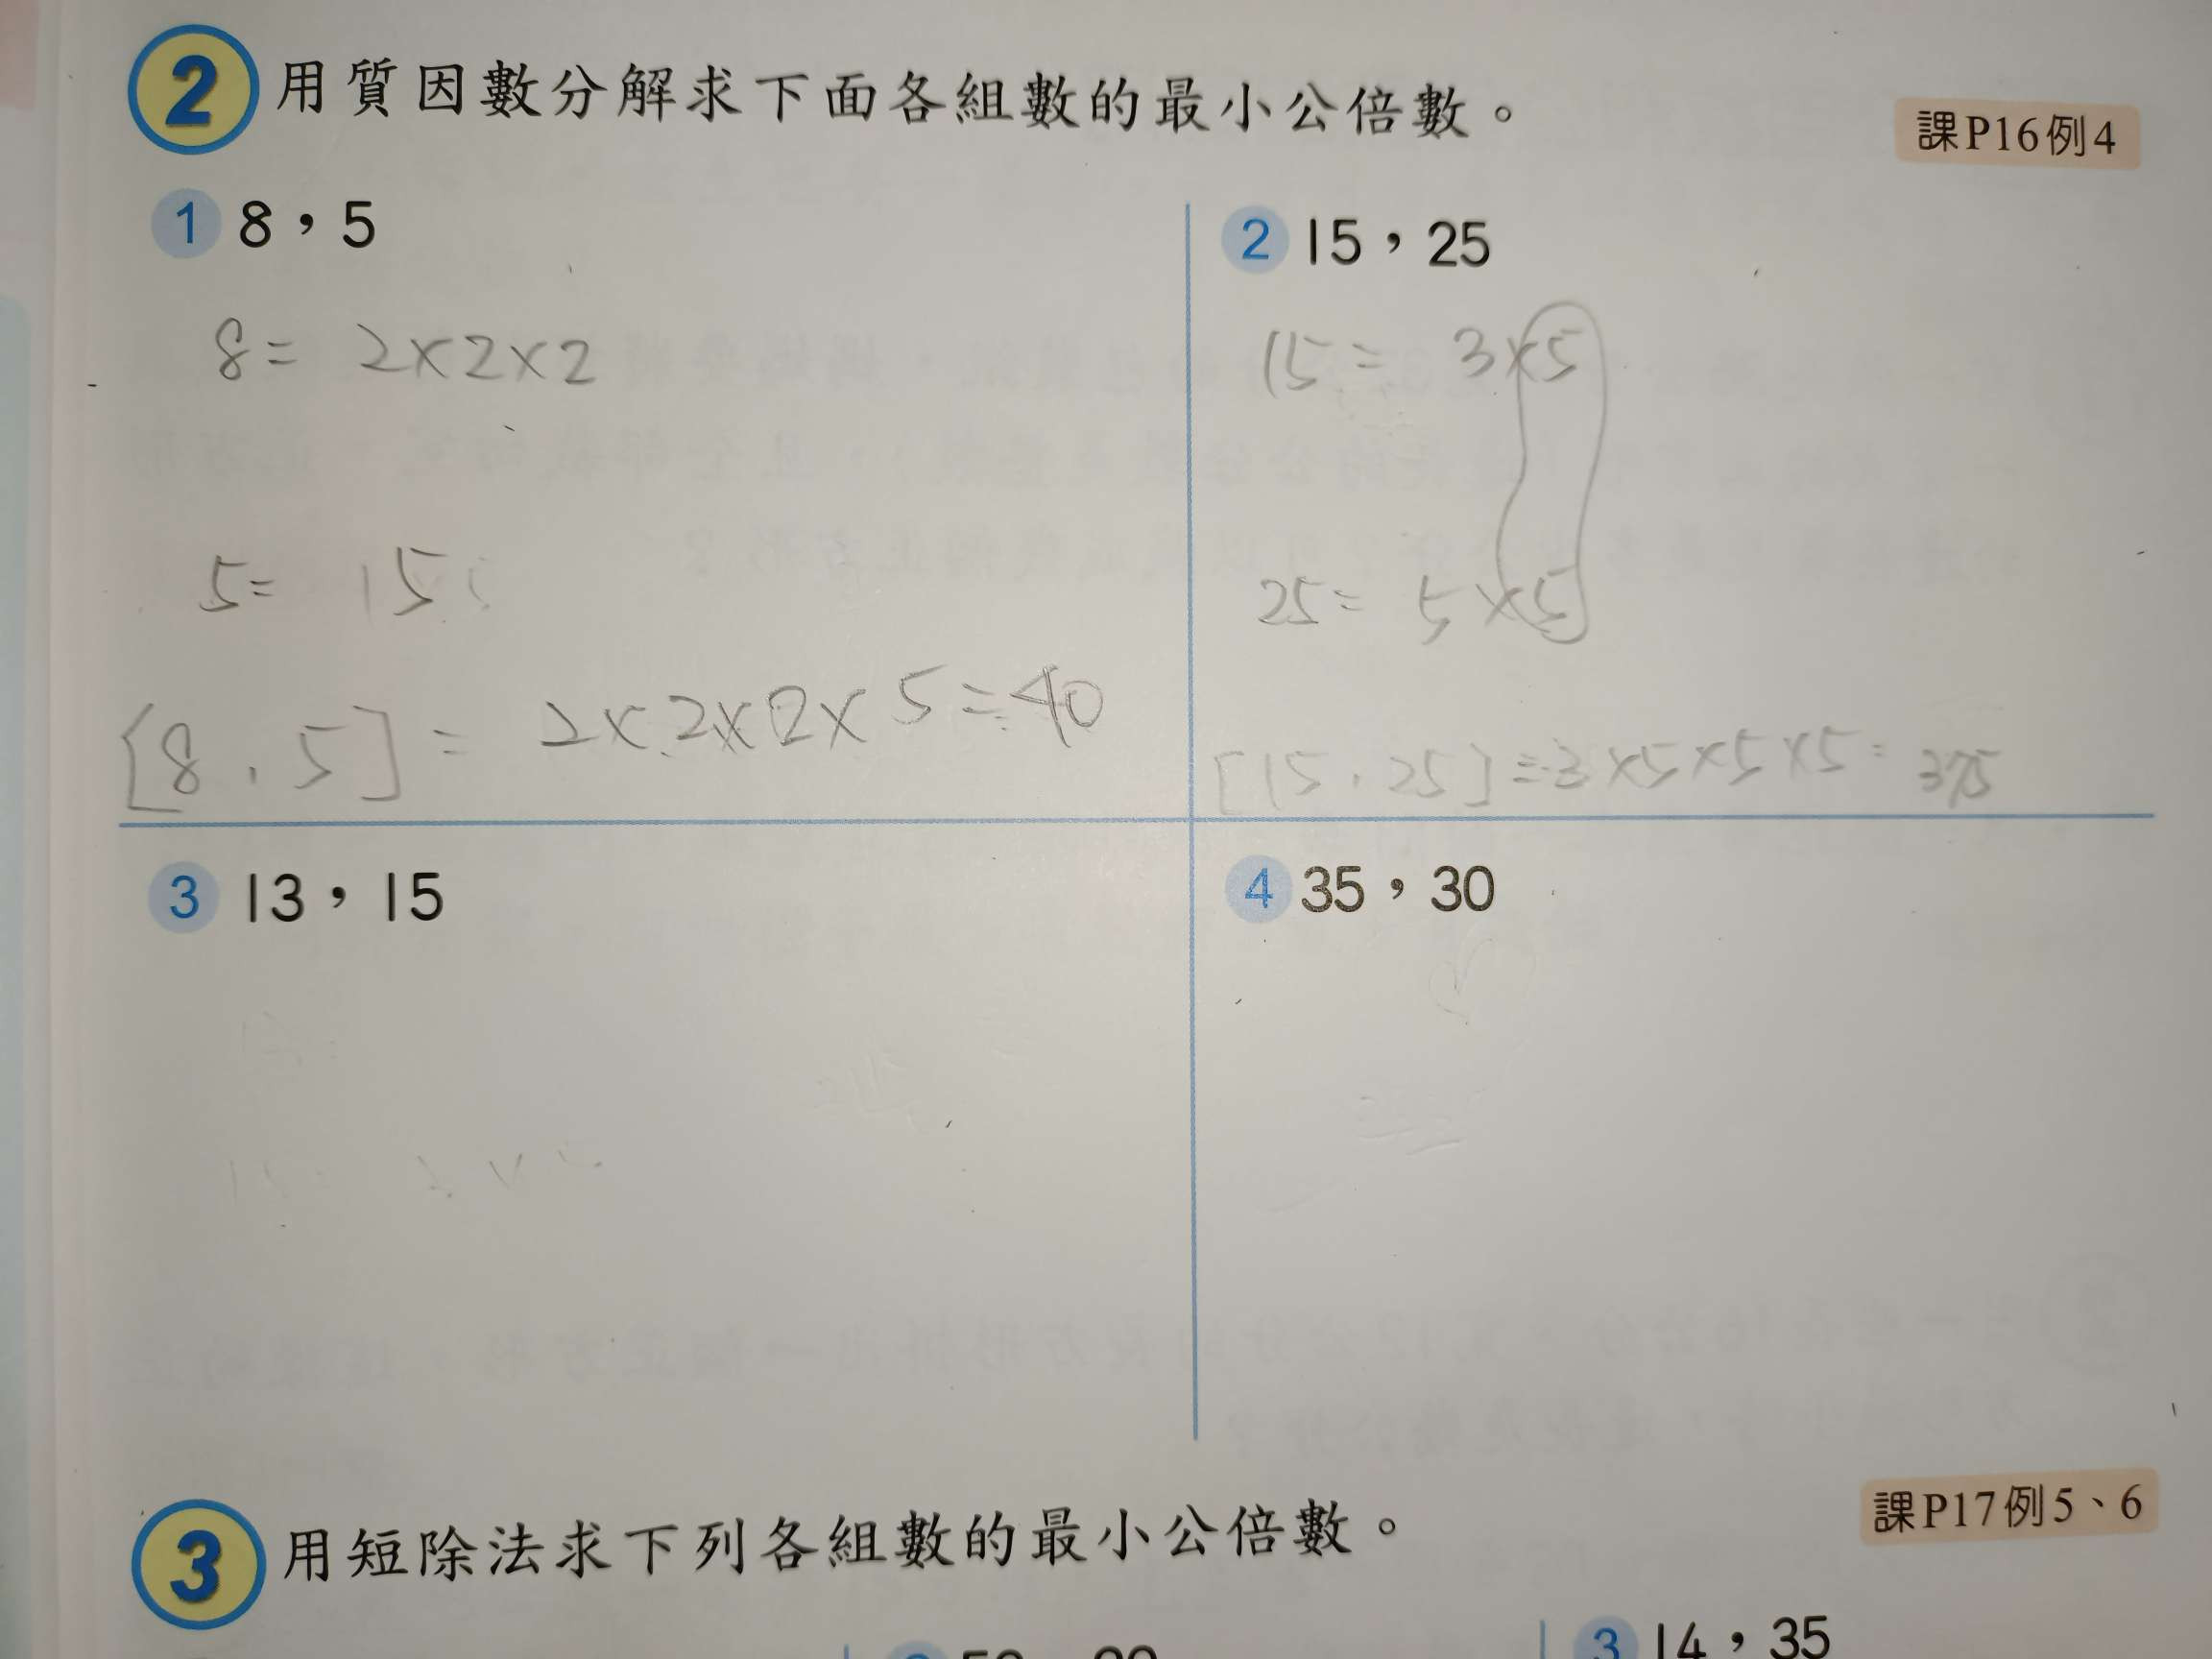 2 用質因數分解求下面各組數的最小公倍數。
課P16例4
1 8，5
8= 2×2×2
5= 15
[8,5]= 2×2×2×5=40
2 15，25
15= 3×5
25= 5×5
[15,25]=3×5×5×5=375
3 13，15
4 35，30
3 用短除法求下列各組數的最小公倍數。
課P17例5、6
3 14，35